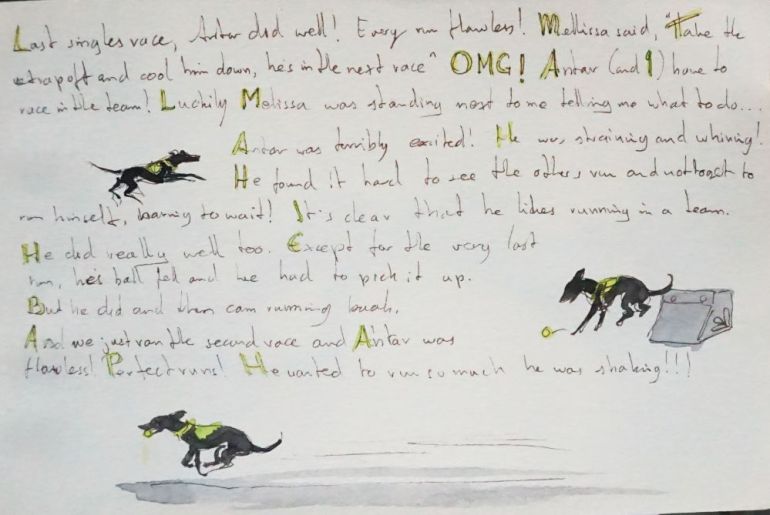 Last singles race, Antar did well! Every run flawless! Mellissa said, "Take the
strap off and cool him down, he's in the next race" OMG! Antar (and I) have to
race in the team! Luckily Melissa was standing next to me telling me what to do...
Antar was terribly excited! He was straining and whining!
He found it hard to see the others run and not to
run himself, having to wait! It's clear that he likes running in a team.
He did really well too. Except for the very last
run, he's ball fell and he had to pick it up.
But he did and then cam running back.
And we just ran the second race and Antar was
flawless! Perfect runs! He wanted to run so much he was shaking!!!